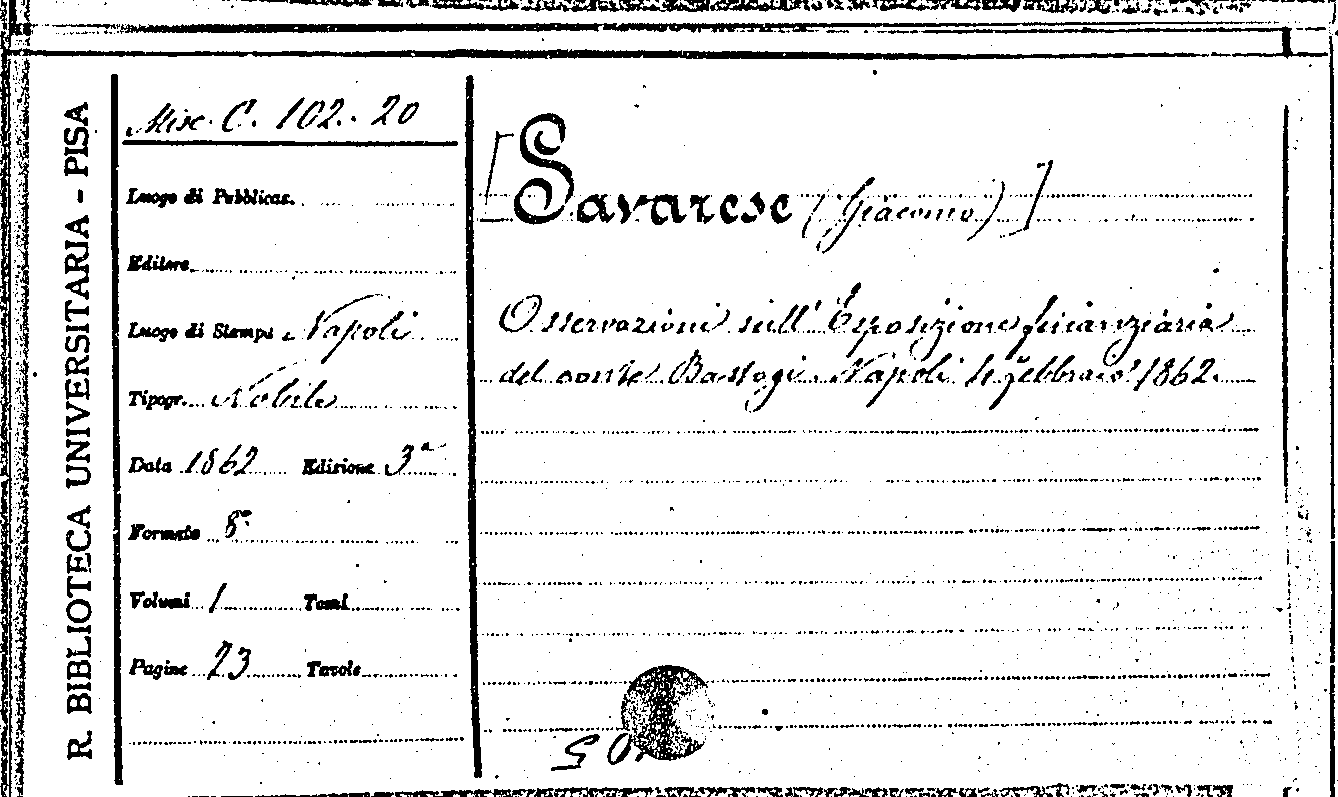 R. BIBLIOTECA UNIVERSITARIA - PISA
Misc. C. 102. 20
Luogo di Pubblicaz.
Editore
Luogo di Stampa Napoli
Tipogr. Nobile
Data 1862 Edizione 3ª
Formato 8°
Volumi 1 Tomi
Pagine 23 Tavole
[Savarese (Giacomo)]
Osservazioni sull' Esposizione finanziaria
del conte Bastogi. Napoli febbraio 1862.